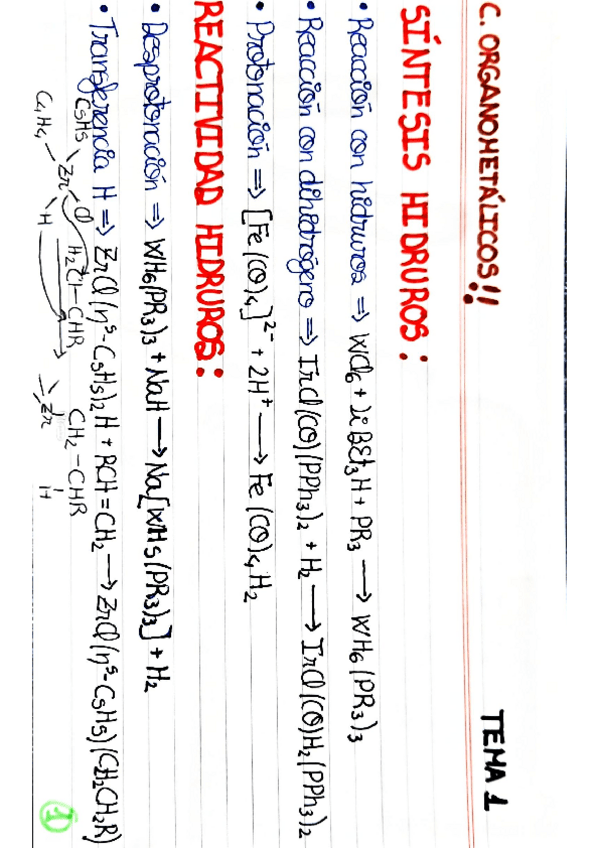 C. ORGANOMETÁLICOS!! TEMA 1
SÍNTESIS HIDRUROS:
• Reacción con hidruros => WCl6 + LiBEt3H + PR3 → WH6(PR3)3
• Reacción con dihidrógeno => IrCl(CO)(PPh3)2 + H2 → IrCl(CO)H2(PPh3)2
• Protonación => [Fe(CO)4]²⁻ + 2H⁺ → Fe(CO)4H2
REACTIVIDAD HIDRUROS:
• Desprotonación => WH6(PR3)3 + NaH → Na[WH5(PR3)3] + H2
• Transferencia H => ZrCl(η⁵-C5H5)2H + RCH=CH2 → ZrCl(η⁵-C5H5)(CH2CH2R)
C5H5 Cl H2C-CHR CH2-CHR
Zr Zr H
H
1